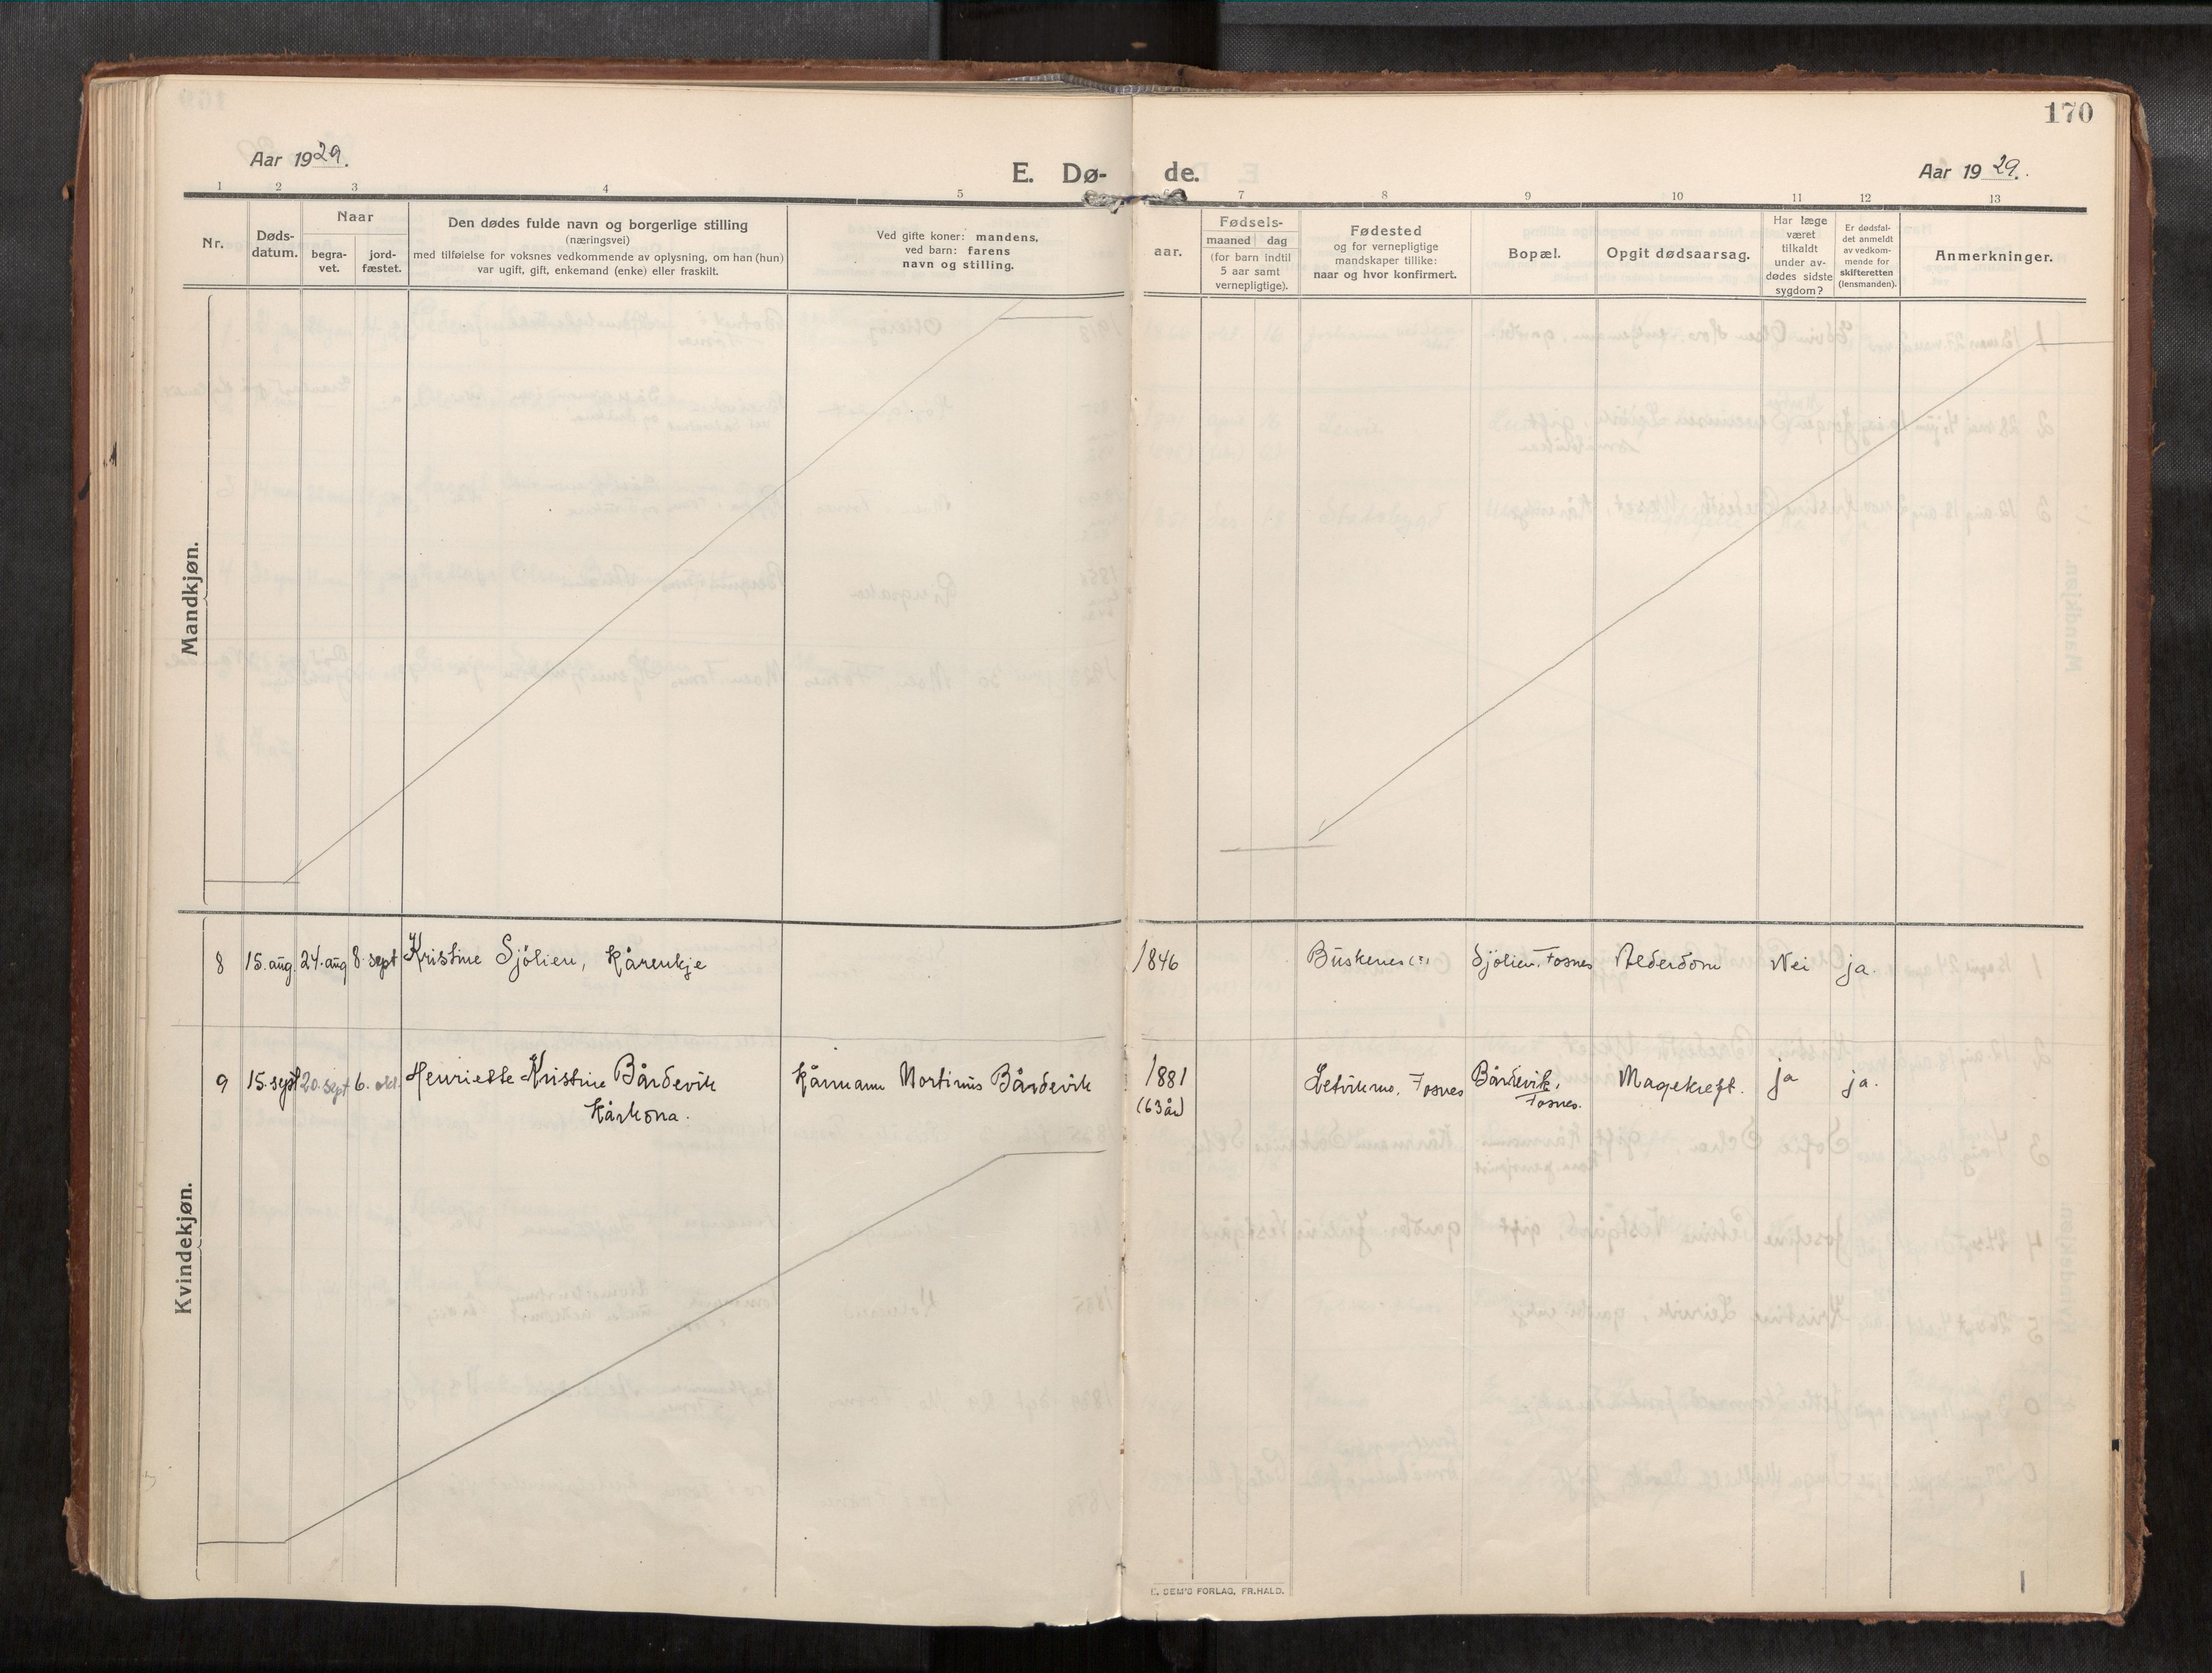 170
Aar 1929.
E. Dø-
de.
Aar 1929.
1 2 3 4 5 7 8 9 10 11 12 13
Nr.
Døds-
datum.
Naar
begra-
vet.
jord-
fæstet.
Den dødes fulde navn og borgerlige stilling
(næringsvei)
med tilføielse for voksnes vedkommende av oplysning, om han (hun)
var ugift, gift, enkemand (enke) eller fraskilt.
Ved gifte koner: mandens,
ved barn: farens
navn og stilling.
aar.
Fødsels-
maaned dag
(for barn indtil
5 aar samt
vernepligtige).
Fødested
og for vernepligtige
mandskaper tillike:
naar og hvor konfirmert.
Bopæl.
Opgit dødsaarsag.
Har læge
været
tilkaldt
under av-
dødes sidste
sygdom?
Er dødsfal-
det anmeldt
av vedkom-
mende for
skifteretten
(lensmanden).
Anmerkninger.
Mandkjøn.
Kvindekjøn.
8 15. aug. 24. aug 8. sept Kristine Sjölien, Kårenkje 1846 Buskenes (?) Sjölien, Fosnes Alderdom Nei ja.
9 15. sept 20. sept 6. okt. Henriette Kristine Bårdevik Kårmann Mortinus Bårdevik 1881 Fosnes Bårdevik, Magekreft. ja ja.
Kårkona. (63 år) Fosnes.
E. SEM'S FORLAG, FR.HALD.